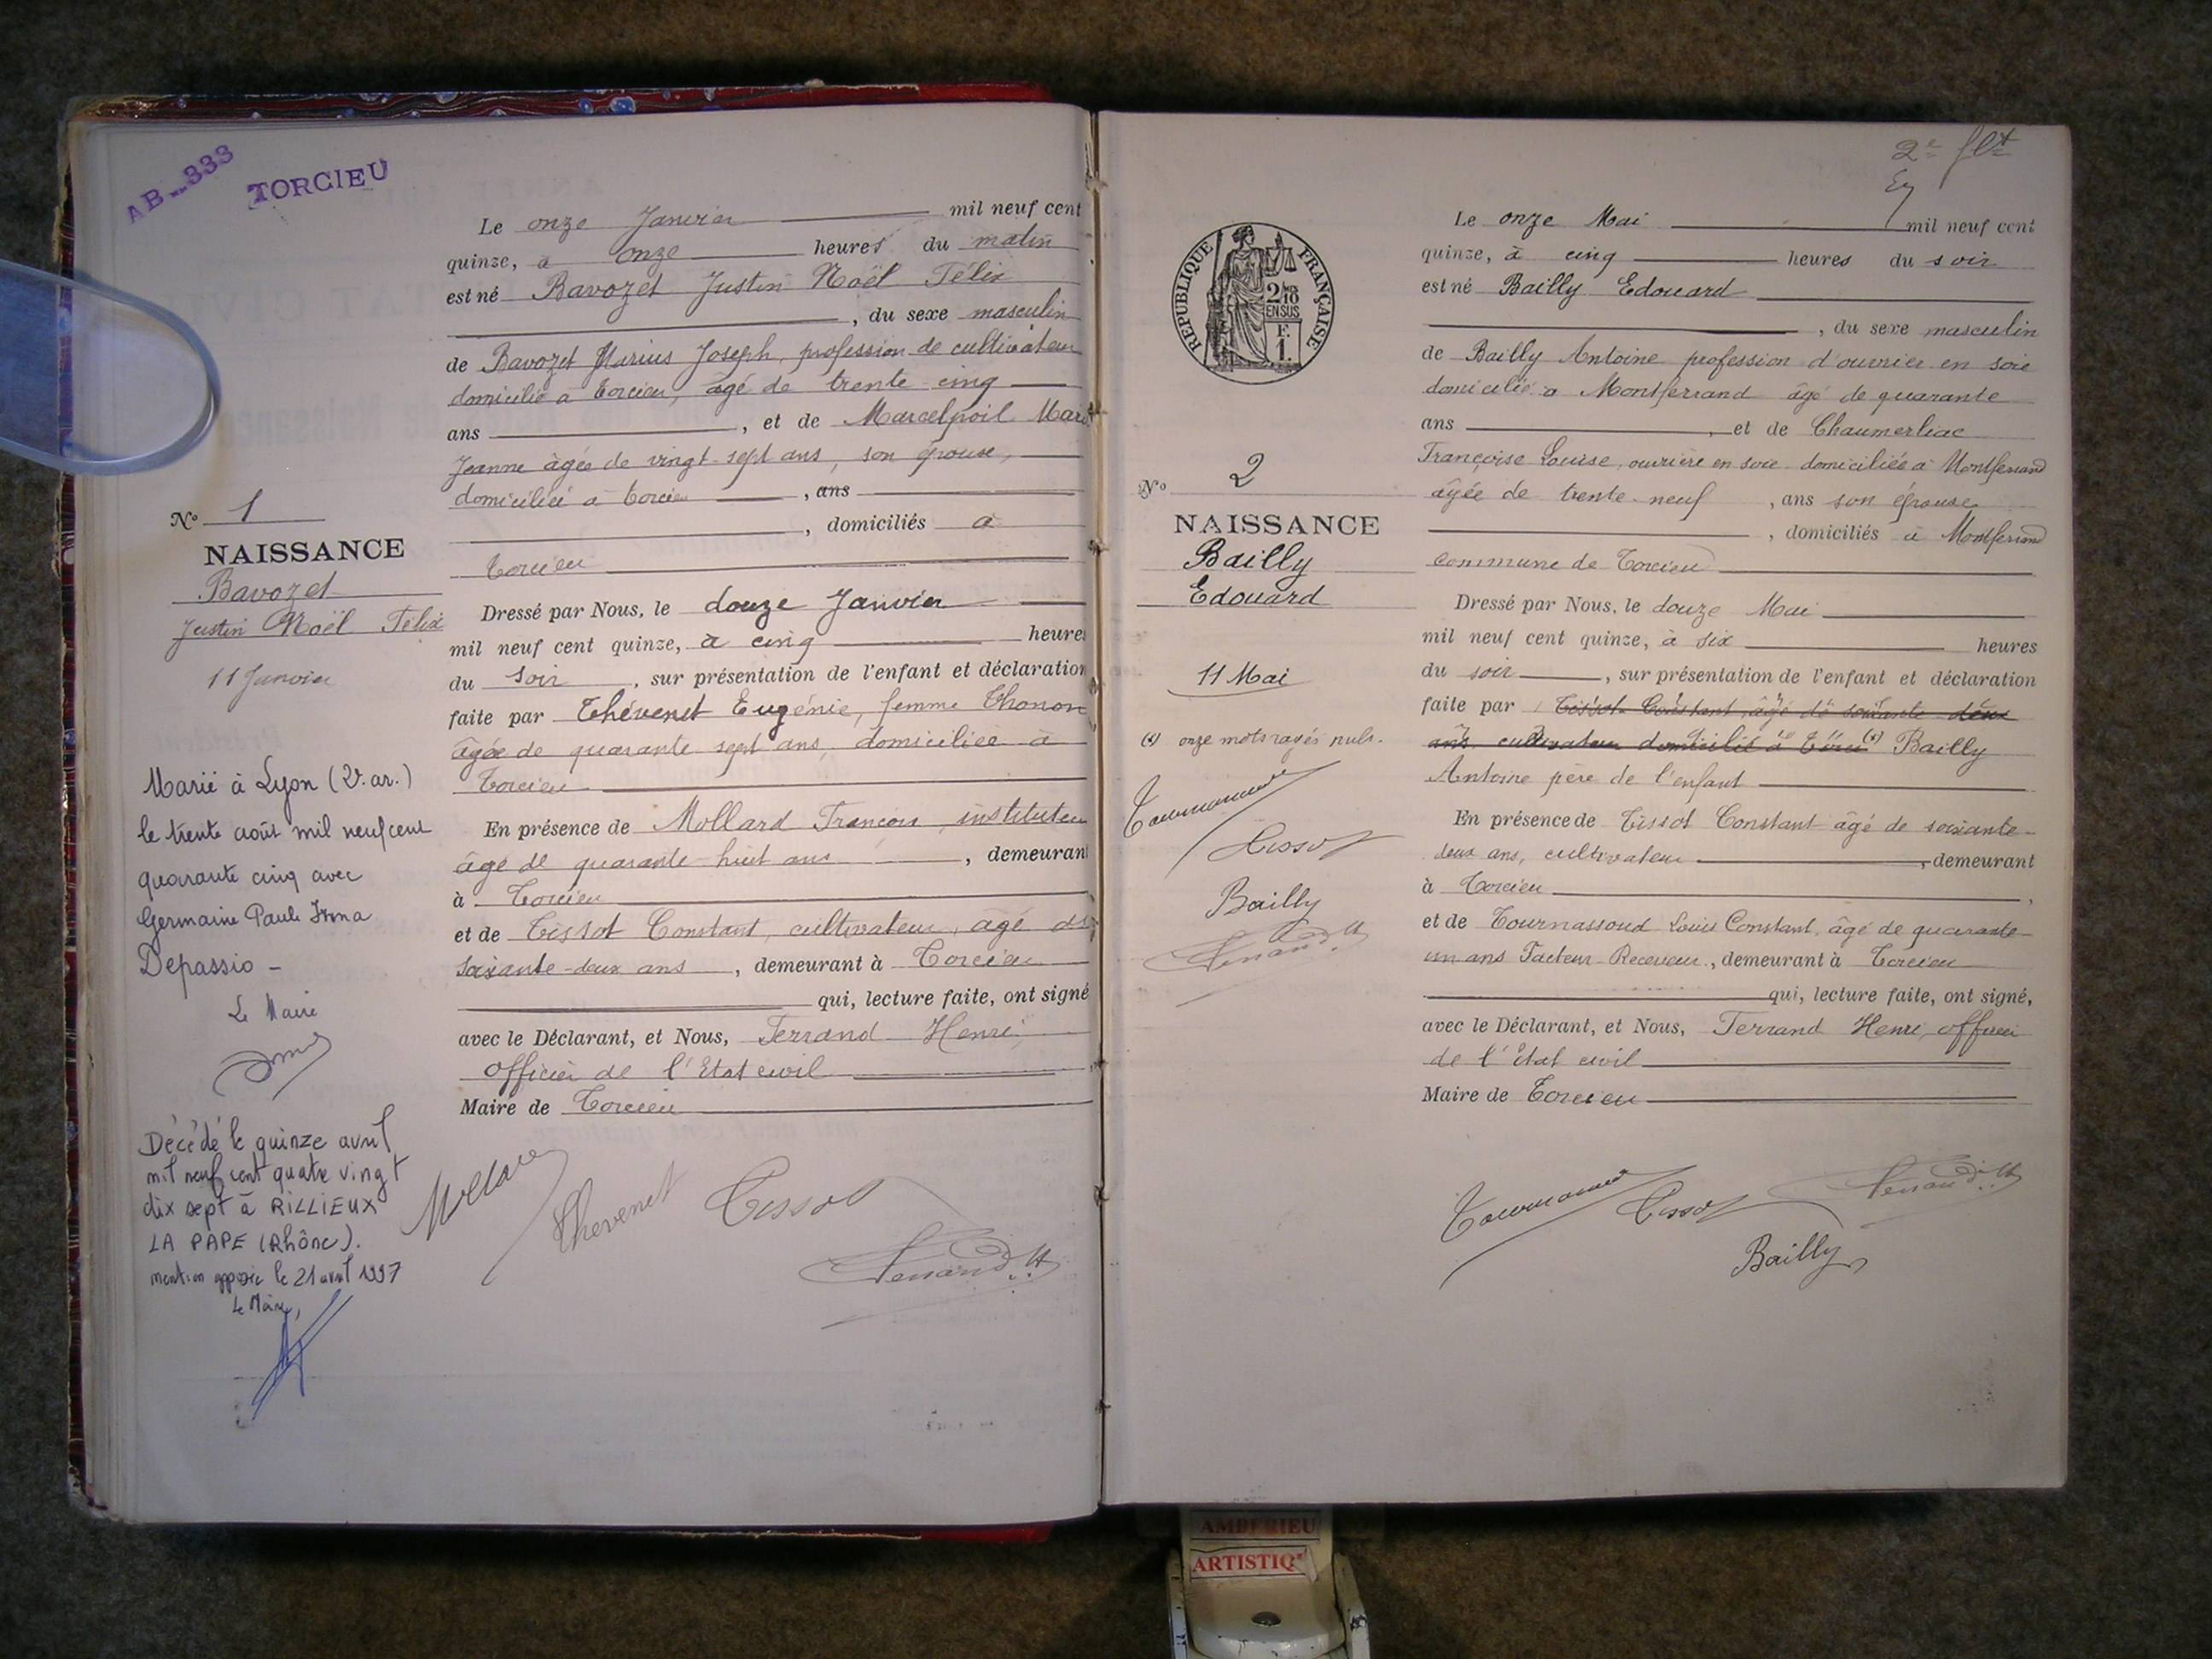 AB_333 TORCIEU
Le onze Janvier mil neuf cent
quinze, à onze heures du matin
est né Bavozet Justin Noël Félix
, du sexe masculin
de Bavozet Marius Joseph, profession de cultivateur
domicilié à Torcieu, âgé de trente-cinq
ans , et de Marcelpoil Marie
Jeanne âgée de vingt-sept ans, son épouse,
domiciliée à Torcieu , ans
, domiciliés à
Torcieu
Dressé par Nous, le douze Janvier
mil neuf cent quinze, à cinq heures
du soir , sur présentation de l'enfant et déclaration
faite par Thévenet Eugénie, femme Thonon
âgée de quarante sept ans, domiciliée à
Torcieu
En présence de Mollard François, instituteur
âgé de quarante-huit ans , demeurant
à Torcieu
et de Tissot Constant, cultivateur, âgé de
soixante-deux ans , demeurant à Torcieu
qui, lecture faite, ont signé
avec le Déclarant, et Nous, Ferrand Henri,
officier de l'Etat civil
Maire de Torcieu
Mollard Thevenet Tissot
Ferrand H
No 1
NAISSANCE
Bavozet
Justin Noël Félix
11 Janvier
Marié à Lyon (V. ar.)
le trente août mil neuf cent
quarante cinq avec
Germaine Paule Irma
Depassio -
Le Maire
Décédé le quinze avril
mil neuf cent quatre vingt
dix sept à RILLIEUX
LA PAPE (Rhône).
mention apposée le 21 avril 1997
Le Maire,
2e flt
RÉPUBLIQUE FRANÇAISE
2/10
EN SUS
F.
1.
Le onze Mai mil neuf cent
quinze, à cinq heures du soir
est né Bailly Edouard
, du sexe masculin
de Bailly Antoine profession d'ouvrier en soie
domicilié à Montferrand âgé de quarante
ans , et de Chaumerliac
Françoise Louise, ouvrière en soie domiciliée à Montferrand
âgée de trente-neuf , ans son épouse
, domiciliés à Montferrand
commune de Torcieu
Dressé par Nous, le douze Mai
mil neuf cent quinze, à six heures
du soir , sur présentation de l'enfant et déclaration
faite par Tissot Constant, âgé de soixante-deux
ans cultivateur domicilié à Torcieu (x) Bailly
Antoine père de l'enfant
En présence de Tissot Constant âgé de soixante-
deux ans, cultivateur , demeurant
à Torcieu ,
et de Tournassoud Louis Constant, âgé de quarante-
un ans Facteur-Receveur , demeurant à Torcieu
qui, lecture faite, ont signé,
avec le Déclarant, et Nous, Ferrand Henri, officier
de l'état civil
Maire de Torcieu
Tournassoud Tissot Ferrand H
Bailly
No 2
NAISSANCE
Bailly
Edouard
11 Mai
(x) onze mots rayés nuls.
Tournassoud
Tissot
Bailly
Ferrand H
AMBERIEU
ARTISTIQ